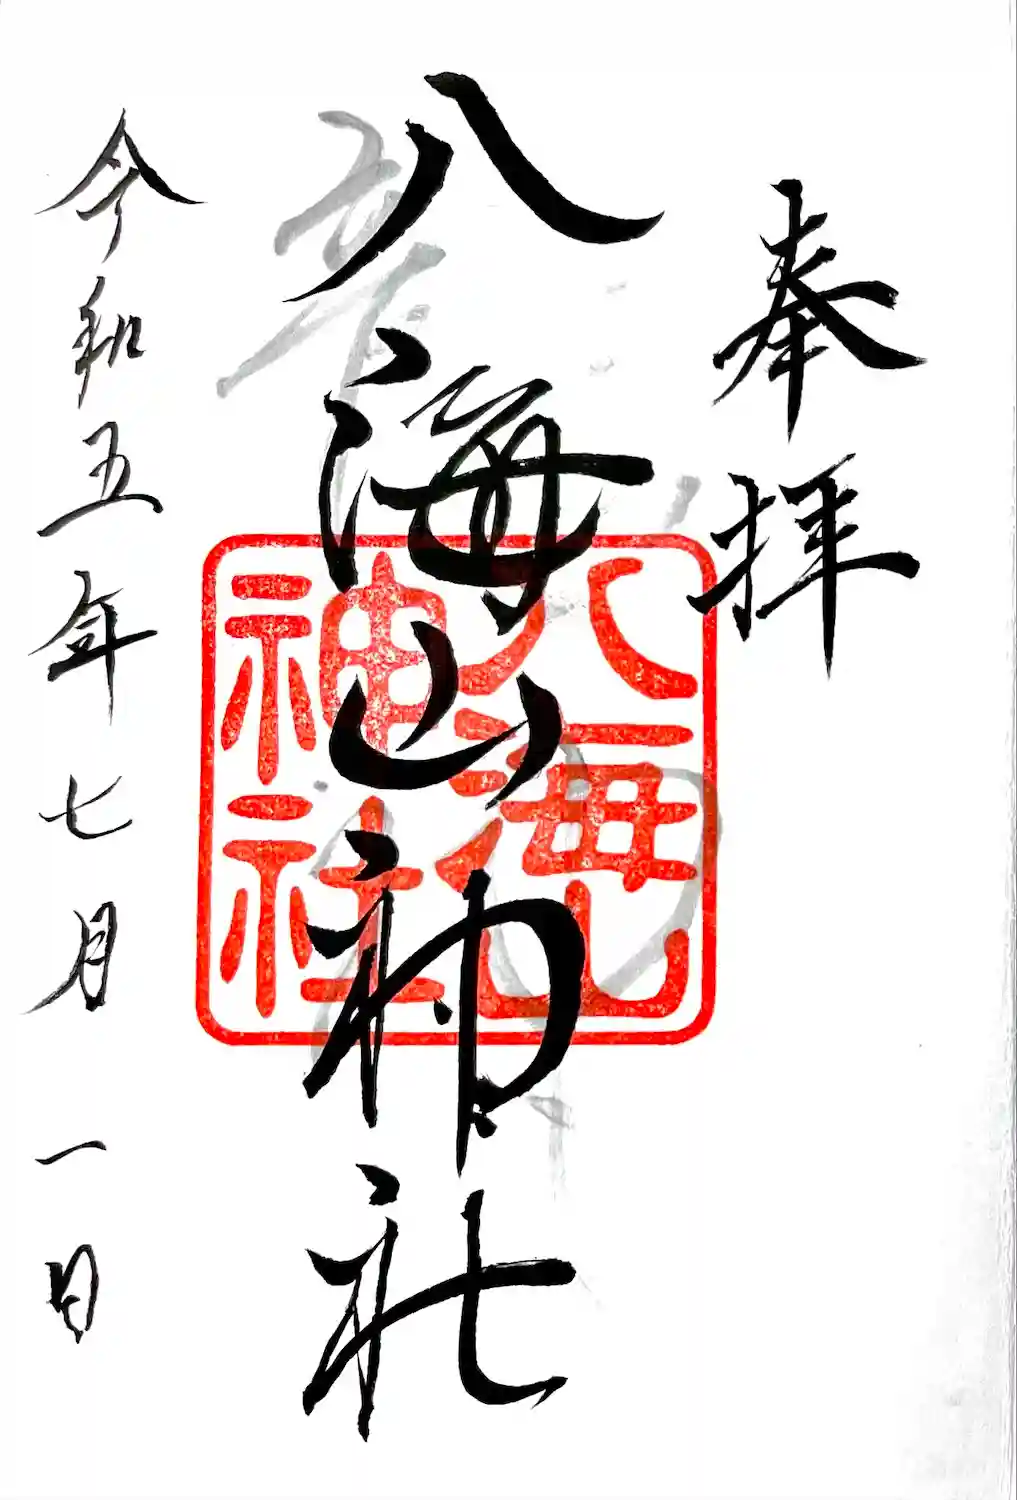 奉拝
八海山神社
八海山
神社
令和五年七月一日